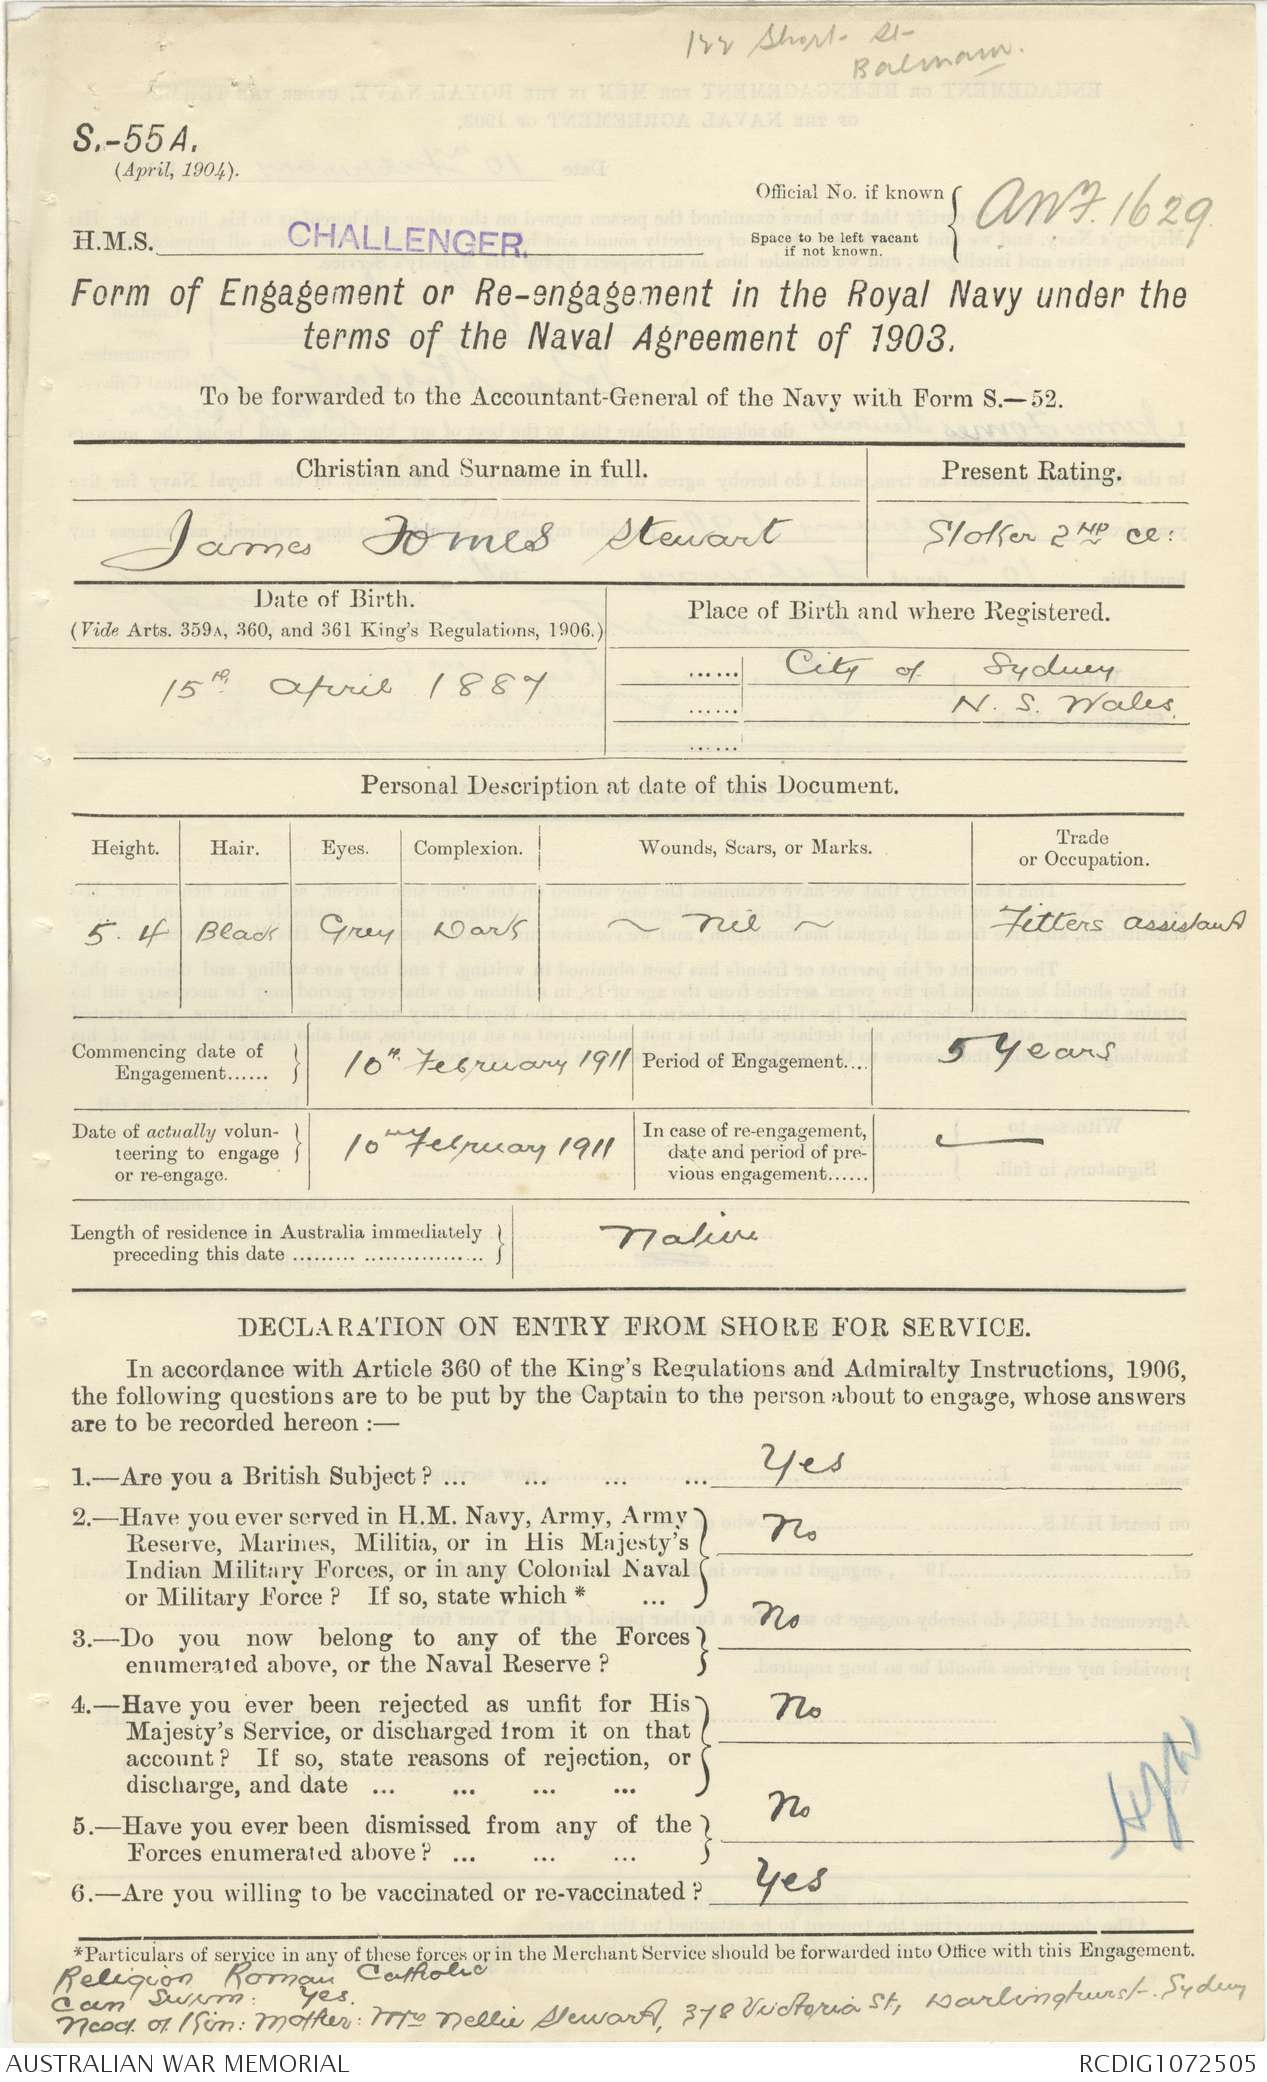 122 Short St
Balmain.
S.-55A.
(April, 1904).
Official No. if known
Space to be left vacant
if not known.
ANF. 1629.
H.M.S. CHALLENGER.
Form of Engagement or Re-engagement in the Royal Navy under the
terms of the Naval Agreement of 1903.
To be forwarded to the Accountant-General of the Navy with Form S.—52.
Christian and Surname in full. Present Rating.
James Fomes Stewart Stoker 2ND Cl:
Date of Birth. Place of Birth and where Registered.
(Vide Arts. 359A, 360, and 361 King's Regulations, 1906.)
15th April 1887
...... City of Sydney
...... N. S. Wales.
......
Personal Description at date of this Document.
Height. Hair. Eyes. Complexion. Wounds, Scars, or Marks. Trade or Occupation.
5.4 Black Grey Dark ~ Nil ~ Fitters assistant
Commencing date of Engagement...... 10th February 1911 Period of Engagement.... 5 Years
Date of actually volunteering to engage or re-engage. 10th February 1911 In case of re-engagement, date and period of previous engagement...... —
Length of residence in Australia immediately
preceding this date ......... .................. Native
DECLARATION ON ENTRY FROM SHORE FOR SERVICE.
In accordance with Article 360 of the King's Regulations and Admiralty Instructions, 1906,
the following questions are to be put by the Captain to the person about to engage, whose answers
are to be recorded hereon :—
1.—Are you a British Subject? ... ... ... ... Yes
2.—Have you ever served in H.M. Navy, Army, Army
Reserve, Marines, Militia, or in His Majesty's
Indian Military Forces, or in any Colonial Naval
or Military Force? If so, state which * ... No
3.—Do you now belong to any of the Forces
enumerated above, or the Naval Reserve? No
4.—Have you ever been rejected as unfit for His
Majesty's Service, or discharged from it on that
account? If so, state reasons of rejection, or
discharge, and date ... ... ... ... No
5.—Have you ever been dismissed from any of the
Forces enumerated above? ... ... ... No
6.—Are you willing to be vaccinated or re-vaccinated? Yes
*Particulars of service in any of these forces or in the Merchant Service should be forwarded into Office with this Engagement.
Religion Roman Catholic
Can Swim: Yes.
Next of Kin: Mother: Mrs Nellie Stewart, 378 Victoria St, Darlinghurst. Sydney
AUSTRALIAN WAR MEMORIAL RCDIG1072505